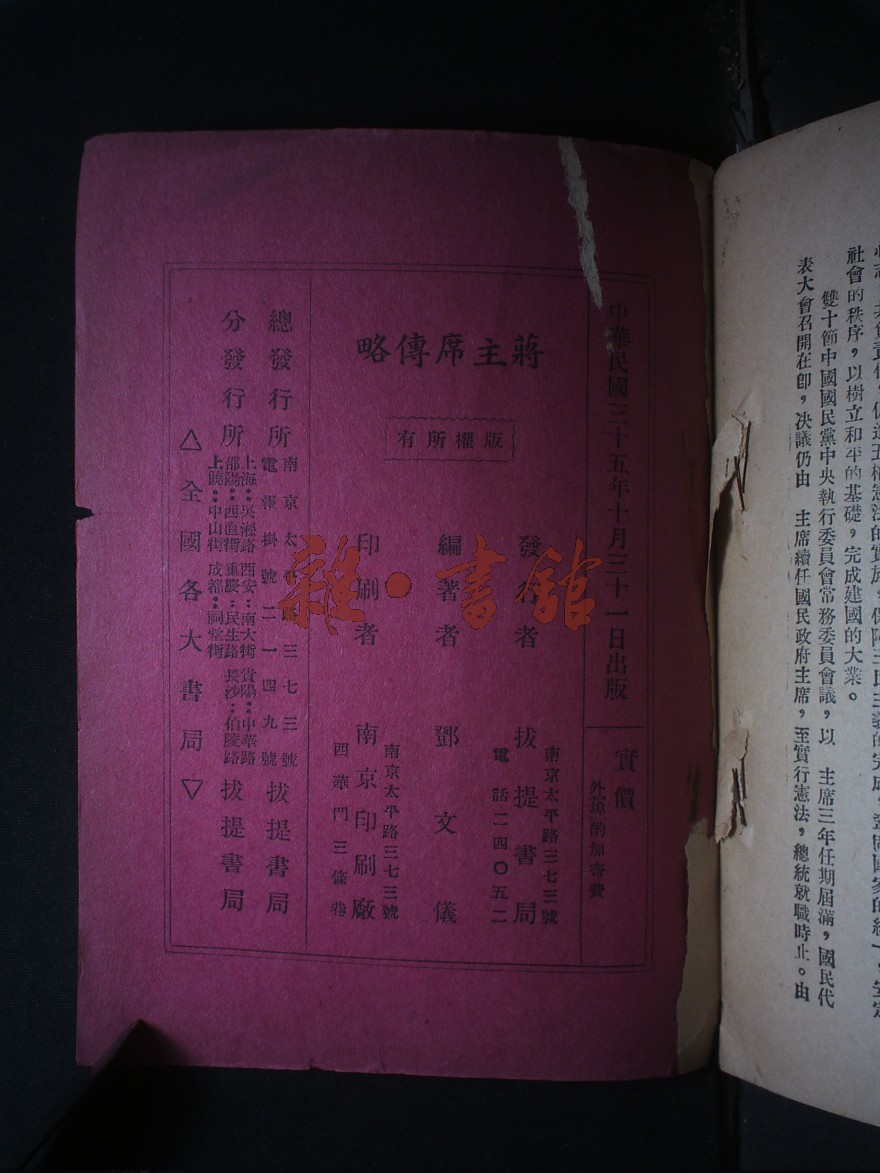 社會的秩序，以樹立和平的基礎，完成建國的大業。
雙十節中國國民黨中央執行委員會常務委員會議，以　主席三年任期屆滿，國民代
表大會召開在卽，决議仍由　主席續任國民政府主席，至實行憲法，總統就職時止。由
中華民國三十五年十月三十一日出版
實價
外埠酌加寄費
蔣主席傳略
版權所有
發行者
拔提書局
南京太平路三七三號
電話二四〇五二
編著者
鄧文儀
印刷者
南京印刷廠
南京太平路三七三號
四華門三條巷
總發行所
南京太平路三七三號
電報掛號二一四九號
拔提書局
分發行所
上海：吳淞路 西安：南大街 貴陽：中華路
邵陽：西直街 重慶：民生路 長沙：伯陵路
上饒：中山街 成都：祠堂街
拔提書局
△全國各大書局▽
雜·書館